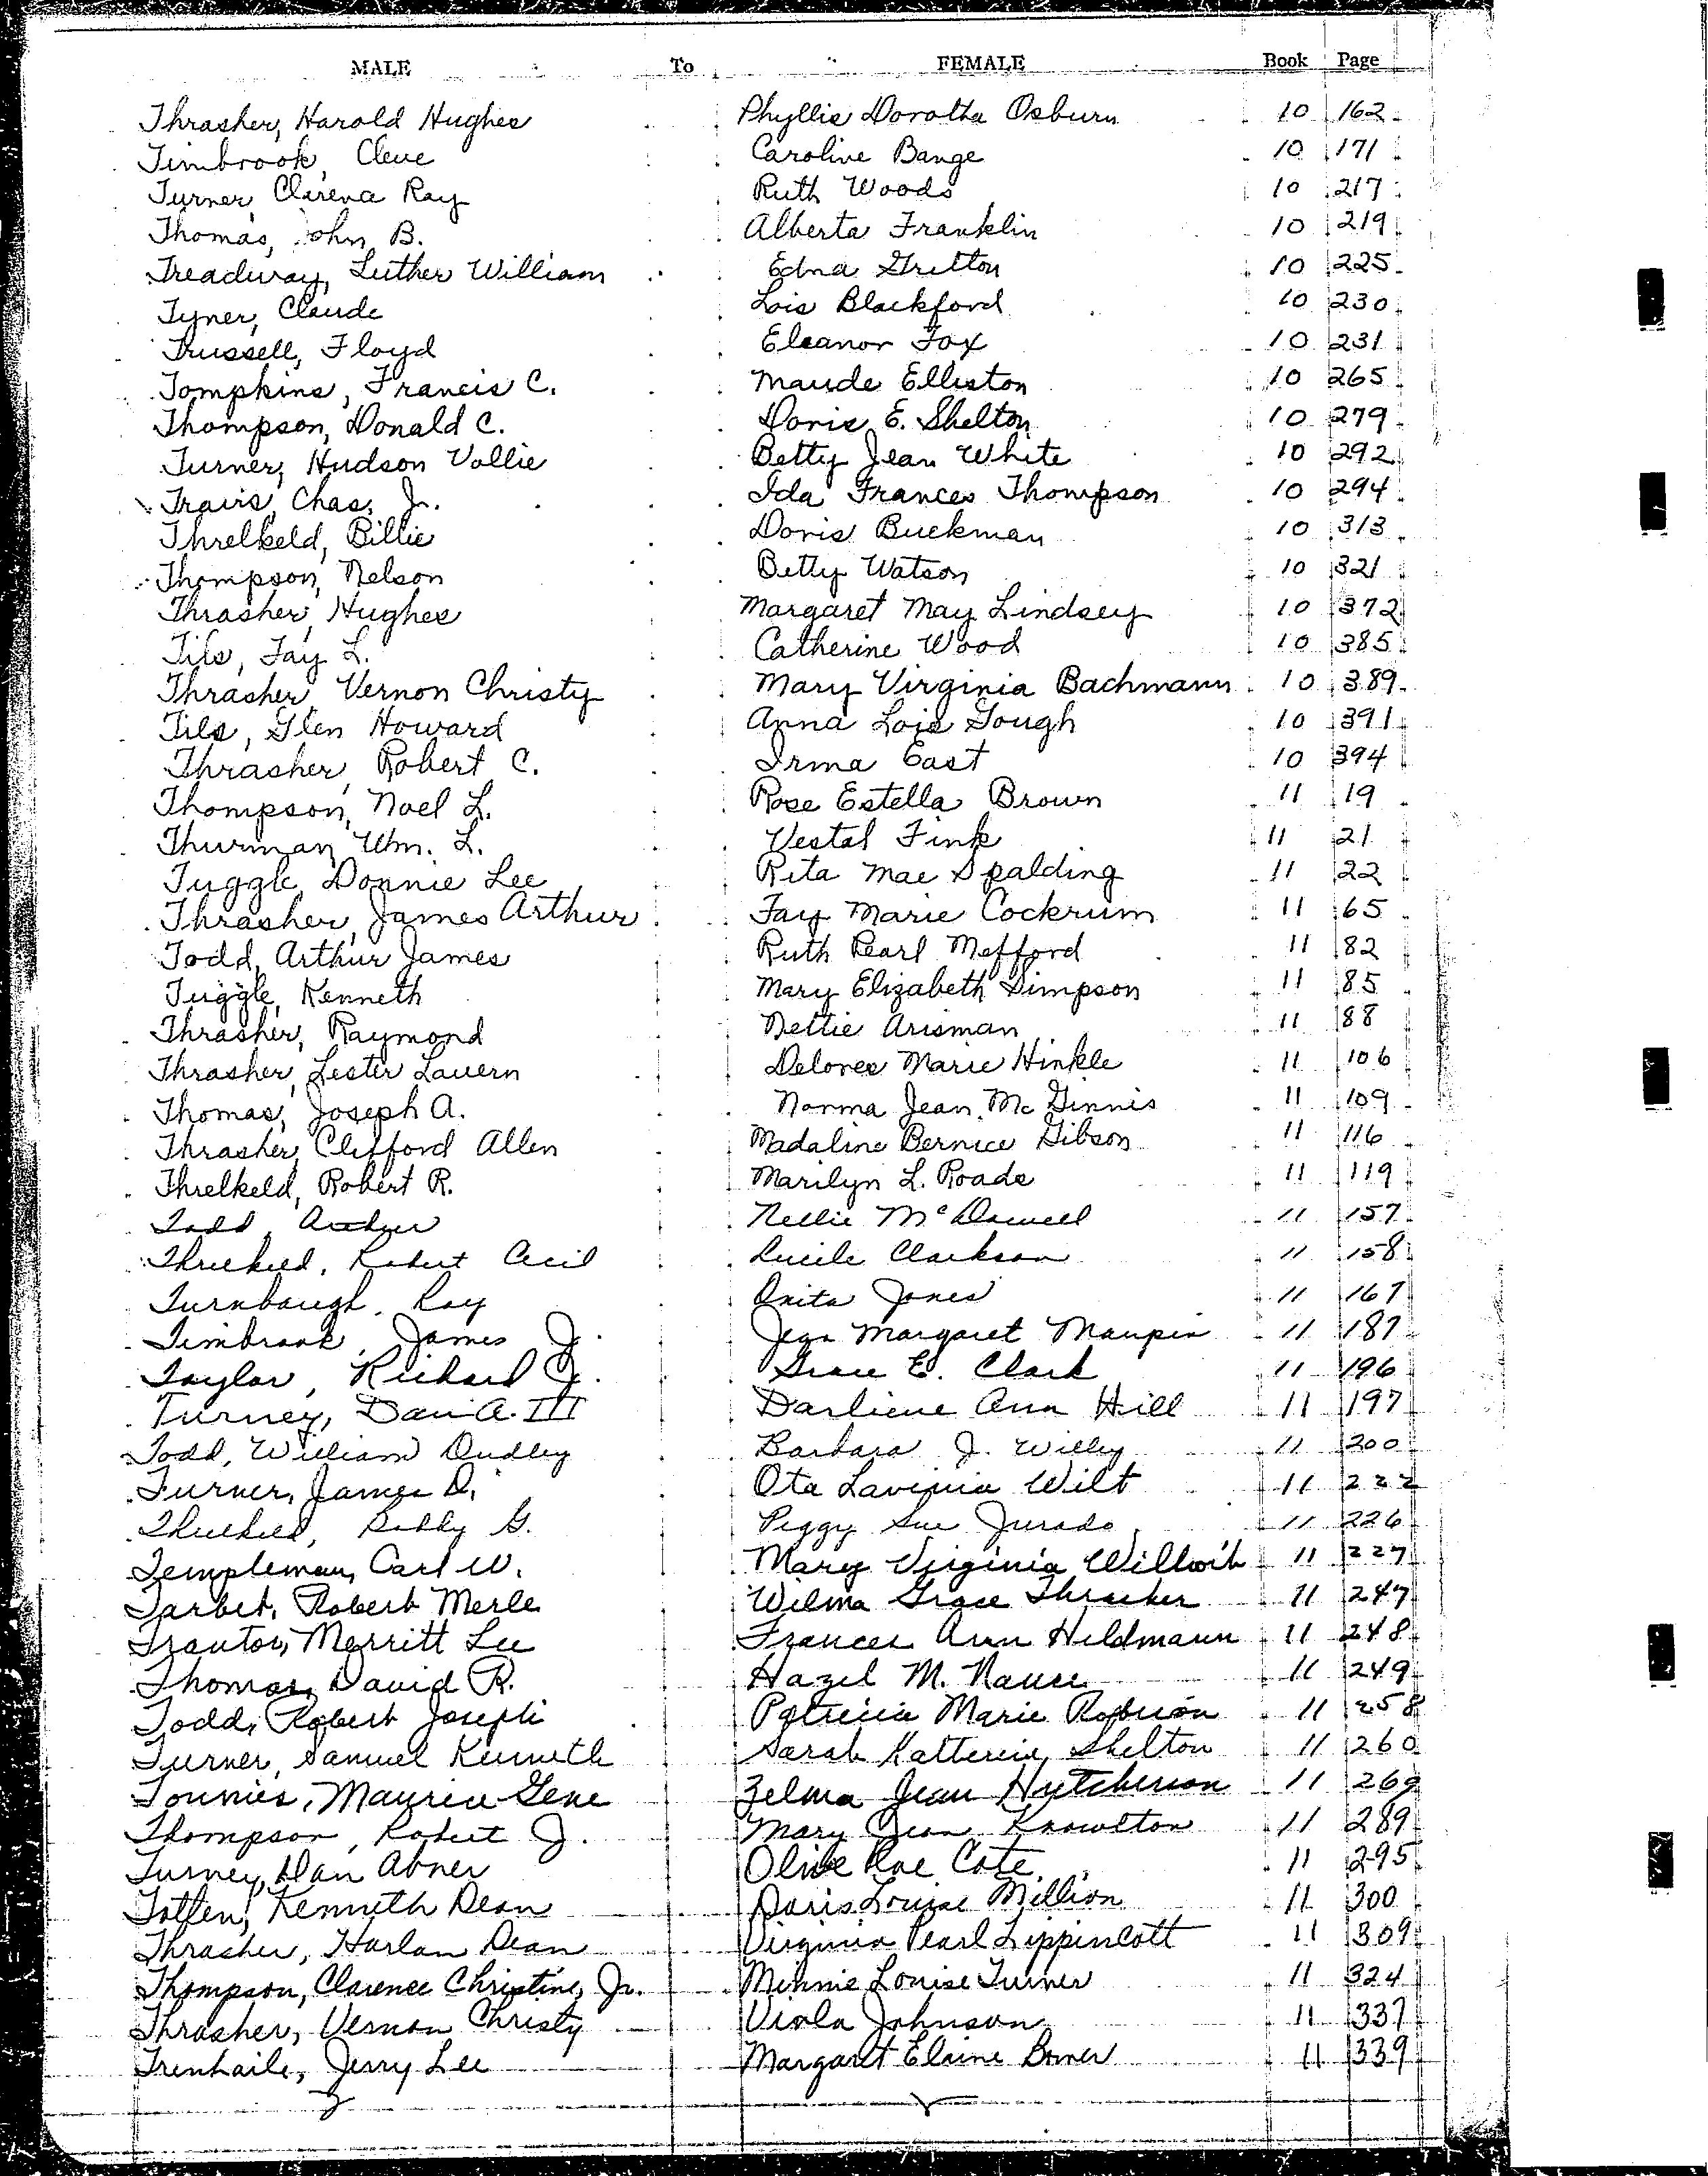 MALE To FEMALE Book Page
Thrasher, Harold Hughes Phyllis Dorotha Osburn 10 162
Timbrook, Cleve Caroline Bange 10 171
Turner, Clarence Ray Ruth Woods 10 217
Thomas, John B. Alberta Franklin 10 219
Treadway, Luther William Edna Gritton 10 225
Tyner, Claude Lois Blackford 10 230
Trussell, Floyd Eleanor Fox 10 231
Tompkins, Francis C. Maude Elliston 10 265
Thompson, Donald C. Doris E. Shelton 10 279
Turner, Hudson Vollie Betty Jean White 10 292
Travis, Chas. Jr. Ida Frances Thompson 10 294
Threlkeld, Billie Doris Buckman 10 313
Thompson, Nelson Betty Watson 10 321
Thrasher, Hughes Margaret May Lindsey 10 372
Tils, Fay L. Catherine Wood 10 385
Thrasher, Vernon Christy Mary Virginia Bachmann 10 389
Tils, Glen Howard Anna Lois Gough 10 391
Thrasher, Robert C. Irma East 10 394
Thompson, Noel L. Rose Estella Brown 11 19
Thurman, Wm. L. Vestal Fink 11 21
Tuggle, Donnie Lee Rita Mae Spalding 11 22
Thrasher, James Arthur Fay Marie Cockrum 11 65
Todd, Arthur James Ruth Pearl Mefford 11 82
Tuggle, Kenneth Mary Elizabeth Simpson 11 85
Thrasher, Raymond Nettie Arisman 11 88
Thrasher, Lester Lavern Delores Marie Hinkle 11 106
Thomas, Joseph A. Norma Jean McGinnis 11 109
Thrasher, Clifford Allen Madaline Bernice Gibson 11 116
Threlkeld, Robert R. Marilyn L. Roads 11 119
Todd, Arthur Nellie McDowell 11 157
Threlkeld, Robert Cecil Lucile Clarkson 11 158
Turnbaugh, Ray Anita Jones 11 167
Timbrook, James J. Jean Margaret Maupin 11 187
Taylor, Richard J. Grace E. Clark 11 196
Turney, Dan A. III Darliene Ann Hill 11 197
Todd, William Dudley Barbara J. Willey 11 200
Turner, James D. Ota Lavinia Wilt 11 222
Threlkeld, Bobby G. Peggy Sue Jurado 11 226
Templeman, Carl W. Mary Virginia 11 227
Tarbet, Robert Merle Wilma Grace Thrasher 11 247
Trautor, Merritt Lee Frances Ann Hildmann 11 248
Thomas, David R. Hazel M. 11 249
Todd, Robert Joseph Patricia Marie Robison 11 258
Turner, Samuel Kenneth Sarah Katherine Shelton 11 260
Tonnies, Maurice Gene Zelma Jean Hutcherson 11 269
Thompson, Robert J. Mary Jean Knowlton 11 289
Turney, Dan Abner Olive Rae Cote 11 295
Totten, Kenneth Dean Doris Louise Million 11 300
Thrasher, Harlan Dean Virginia Pearl Lippincott 11 309
Thompson, Clarence Christine, Jr. Minnie Louise Turner 11 324
Thrasher, Vernon Christy Viola Johnson 11 337
Trenhaile, Jerry Lee Margaret Elaine Bomer 11 339